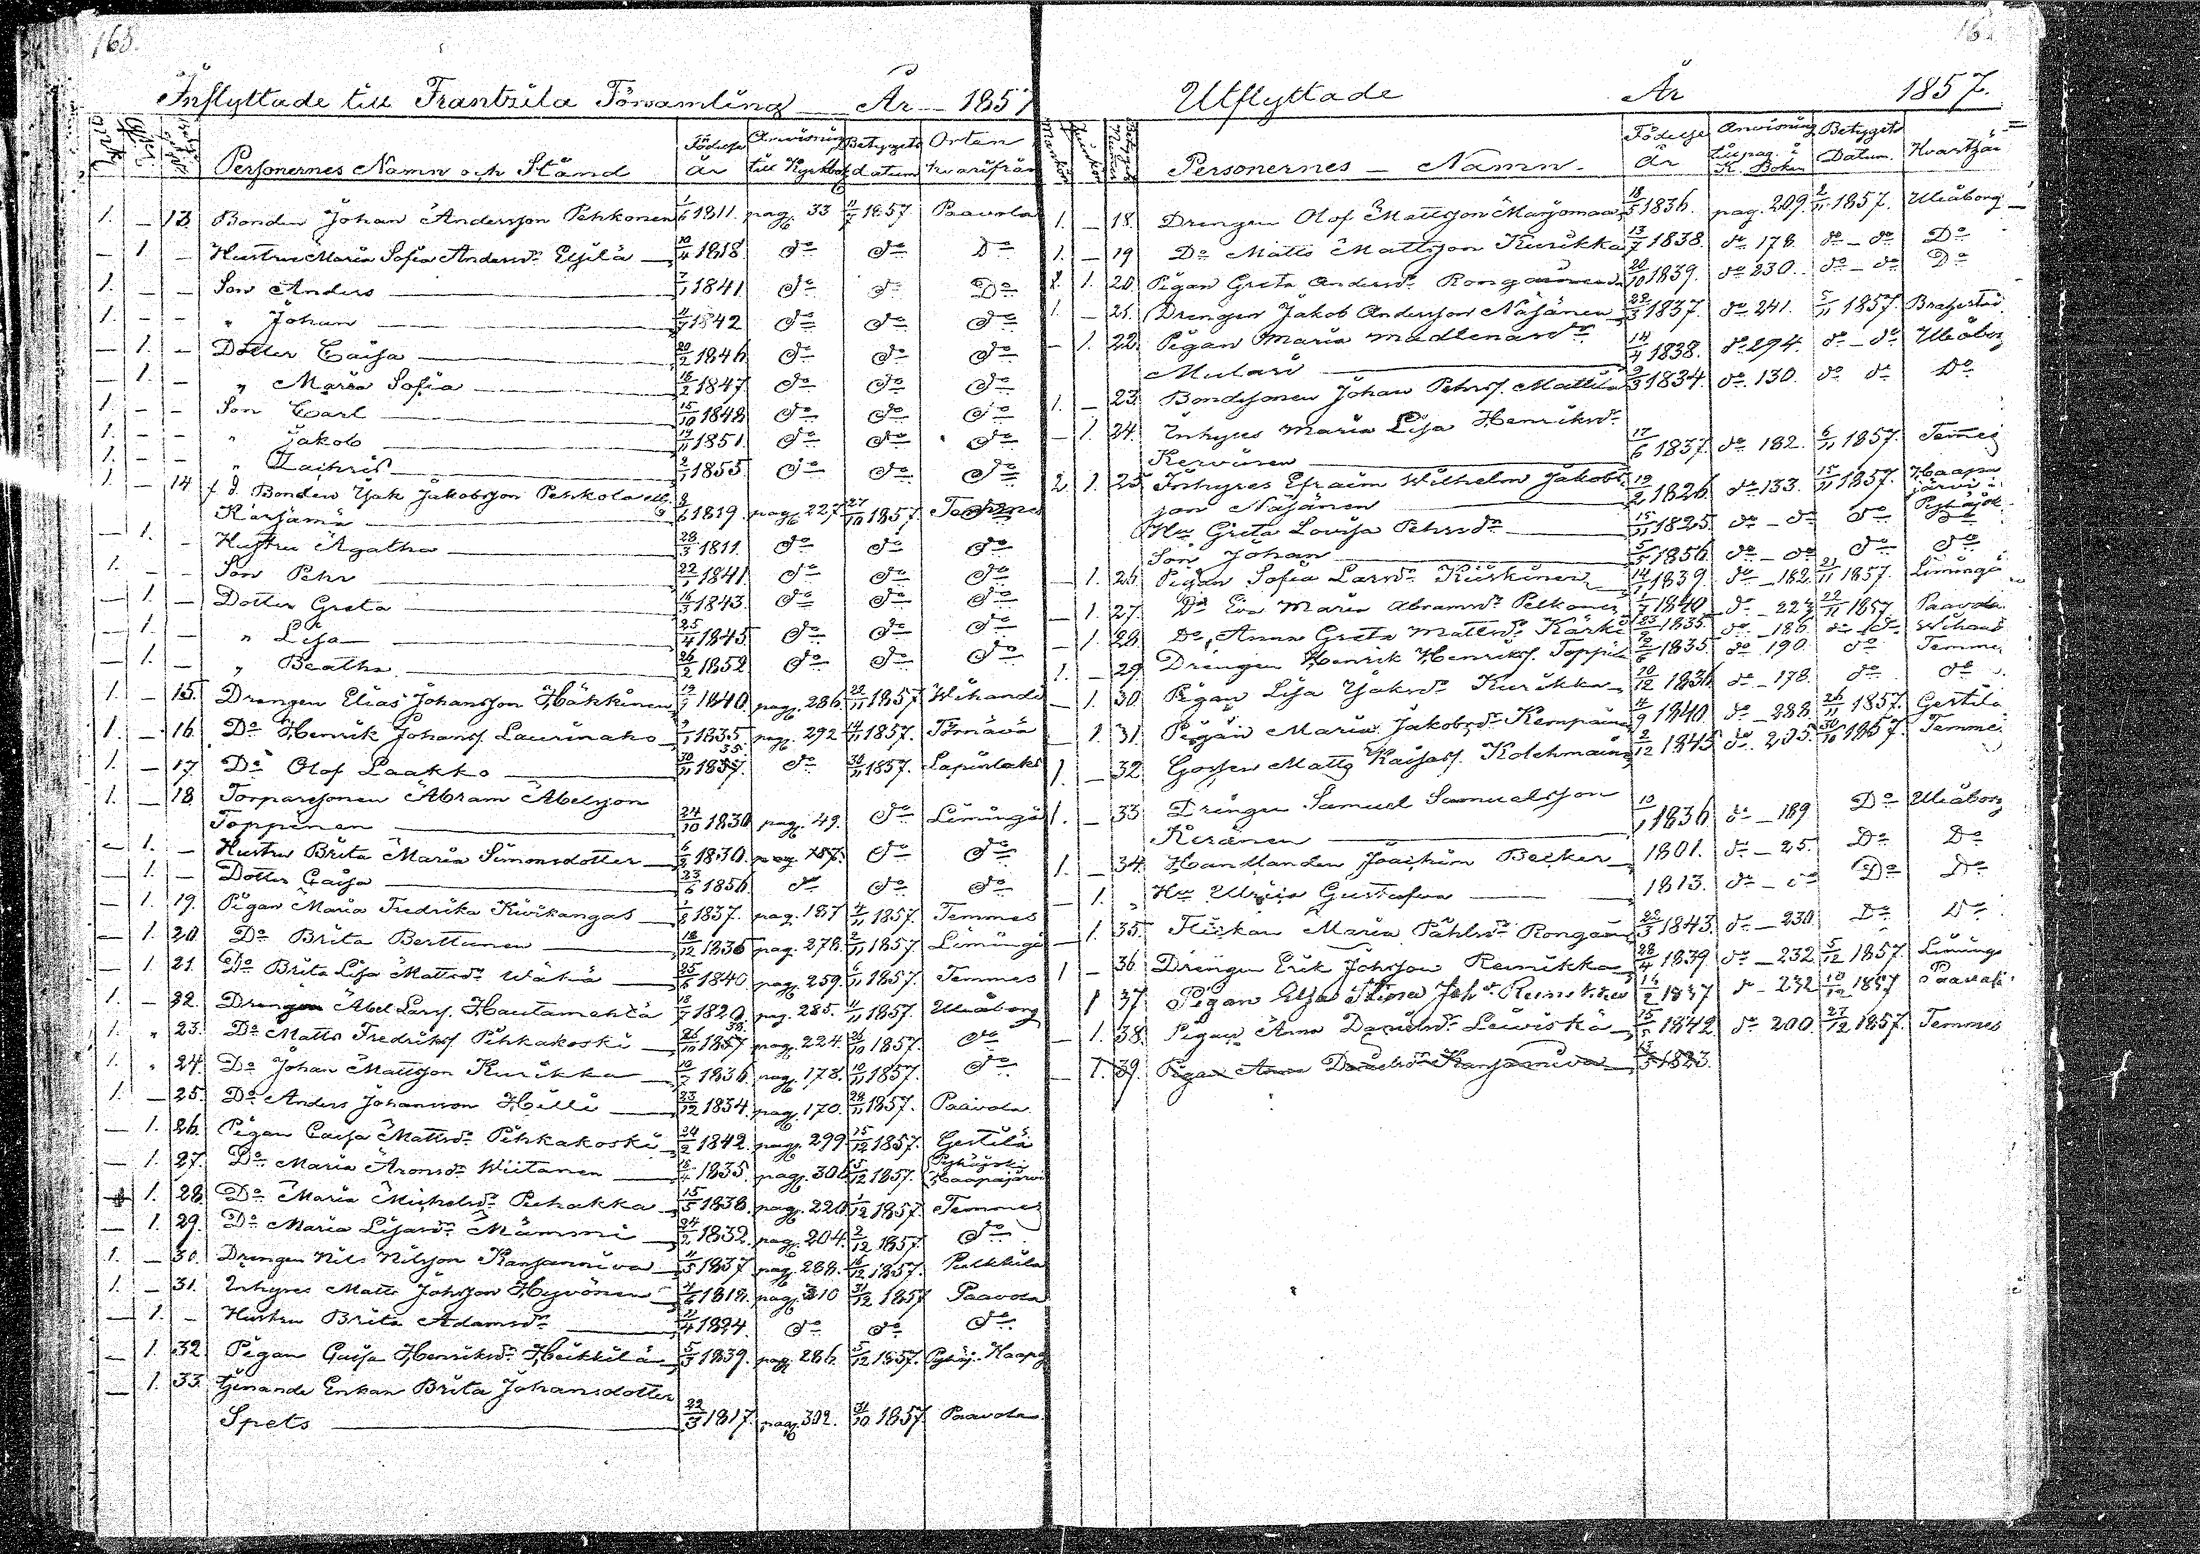 168.
Inflyttade till Frantsila Församling År 1857
Personernes Namn och Stånd Födelse år Anvisning till Kyrkbok Betygets datum Orten hvarifrån
1. — 13. Bonden Johan Andersson Pehkonen 1/6 1811. pag. 33 11/7 1857. Paavola
— 1. — Hustru Maria Sofia Andersdr 10/4 1818. do do Do
1. — — Son Anders 7/1 1841 do do Do
1. — — " Johan 4/7 1842 do do do
— 1. — Dotter Caisa 20/2 1846 do do do
— 1. — " Maria Sofia 16/2 1847. do do do
1. — — Son Carl 15/10 1848 do do do
1. — — " Jakob 19/11 1851. do do do
1. — — " 2/2 1855 do do do
1. — 14. f. d. Bonden Isak Jakobsson Pehkola ell.
Karjamä 8/6 1819. pag. 227 27/10 1857.
— 1. — Hustru Agatha 28/3 1811. do do do
1. — — Son Pehr 22/7 1841. do do do
— 1. — Dotter Greta 16/3 1843. do do do
— 1. — " Lisa 25/4 1845 do do do
— 1. — " Beatha 26/2 1852 do do do
1. — 15. Drengen Elias Johansson Häkkinen 19/7 1840. pag. 286. 22/11 1857. Wihandi
1. — 16. Do Henrik Johans. Laurinaho 9/7 1835. pag. 292 14/11 1857. Törnävä
1. — 17. Do Olof Laakko 30/11 1837. do 30/11 1857.
1. — 18. Torparesonen Abram Abelsson
Toppinen 24/10 1830 pag. 49. do Limingo
— 1. — Hustru Brita Maria Simonsdotter 6/2 1830. pag. 187. do do
— 1. — Dotter Caisa 23/6 1856. do do do
— 1. 19. Pigan Maria Fredrika Kivikangas 1/8 1837. pag. 187 4/11 1857. Temmes
— 1. 20. Do Brita Berttunen 18/12 1836 pag. 278. 2/11 1857. Limingo
— 1. 21. Do Brita Lisa Mattsdr Wähä 25/6 1840. pag. 259. 6/11 1857. Temmes
1. — 22. Drengen Abel Lars. Hautamehtä 15/7 1820. pag. 285. 11/11 1857. Uleåborg
1. " 23. Do Matts Fredriks. Pihkakoski 26/10 1857 pag. 224. 26/10 1857. do
1. " 24. Do Johan Mattsson Kurikka 10/7 1836. pag. 178. 10/11 1857. do
1. — 25. Do Anders Johansson Hilli 23/12 1834. pag. 170. 28/11 1857. Paavola
— 1. 26. Pigan Caisa Mattsdr Pihkakoski 24/2 1842. pag. 299. 15/12 1857. Gestilä
— 1. 27. Do Maria Aronsdr Wiitanen 1835. pag. 306. 5/12 1857. Haapajärvi
1. 28. Do Maria Michelsdr Puhakka 15/5 1838. pag. 220. 1/12 1857. Temmes
— 1. 29. Do Maria Lisasdr Mämmi 24/2 1832. pag. 204. 2/12 1857. do
1. — 30. Drengen Nils Nilsson Kansanniva 11/5 1837 pag. 288. 12 1857. Pulkkila
1. — 31. Inhyses Matts Johsson Hyvönen 4/6 1818. pag. 310 31/12 1857 Paavola
— 1. — Hustru Brita Adamsdr 11/4 1824. do do do
— 1. 32. Pigan Caisa Henriksdr Heikkilä 5/3 1839. pag. 286. 5/12 1857.
— 1. 33. tjenande Enkan Brita Johansdotter
Spets 22/3 1817. pag. 302. 31/10 1857. Paavola
Utflyttade År 1857.
Personernes — Namn. Födelse år Anvisning till pag. i K. Boken Betygets Datum. Hvarthän
1. — 18. Drengen Olof Mattsson Marjomaa 18/5 1836. pag. 209. 2/11 1857. Uleåborg
1. — 19. Do Matts Mattsson Kurikka 13/7 1838. do 178. do — do Do
1. 20. Pigan Greta Andersdr 20/10 1839. do 230. do — do Do
1. — 21. Drengen Jakob Andersson Näsänen 22/3 1837. do 241. 5/11 1857. Brahestad
— 1. 22. Pigan Maria Madlenasdr
Mulari 14/4 1838. do 294. do — do Uleåborg
1. — 23. Bondesonen Johan Pehrs. Mattila 9/3 1834. do. 130. do do Do
— 1. 24. Inhyses Maria Lisa Henriksdr
Kervinen 17/6 1837. do 182. 6/11 1857. Temmes
2. 1. 25. Inhyses Efraim Wilhelm Jakobs-
son Näsänen 19/2 1826. do 133. 15/11 1857. Haapajärvi i
Hu Greta Lovisa Pehrsdr 15/11 1825. do — do do
Son Johan 5/5 1856. do — do do do
— 1. 26. Pigan Sofia Larsdr Kiiskinen 14/7 1839. do — 182. 21/11 1857. Limingo
— 1. 27. Do Eva Maria Abramsdr Pelkonen 1/7 1840. do — 223 22/11 1857. Paavola
— 1. 28. Do Anna Greta Mattsdr Kärki 23/2 1835. do — 186. do do Wihandi
1. — 29. Drengen Henrik Henriks. Toppila 2/6 1835. do 190. do Temmes
— 1. 30. Pigan Lisa Isaksdr Kurikka 10/12 1836. do — 178. do do
— 1. 31. Pigan Maria Jakobsdr Kempainen 14/9 1840. do — 288. 26/11 1857. Gestilä
1. — 32. Gossen Matts Kaisas. Kolehmainen 2/12 1845 do. 205. 30/10 1857. Temmes
1. — 33. Drengen Samuel Samuelsson
Keränen 10/1 1836 do — 189 Do Uleåborg
1. — 34. Handlanden Joachim Becker 1801. do — 25. Do Do
— 1. " Hu Ulrica Gustafva 1813. do — do Do Do
— 1. 35. Flickan Maria Påhlsdr 22/3 1843. do — 230 Do Do
1 — 36. Drengen Erik Johsson Reinikka 28/4 1839. do — 232 5/12 1857. Limingo
1 37. Pigan Elsa Stina Johdr Reinikka 14/2 1837 do — 232 10/12 1857 Paavola
— 1. 38. Pigan Anna Davidsdr Leiviskä 15/5 1842. do 200. 27/12 1857. Temmes
— 1. 39. Pigan Anna Davidsdr Kansaniva 13/5 1823.